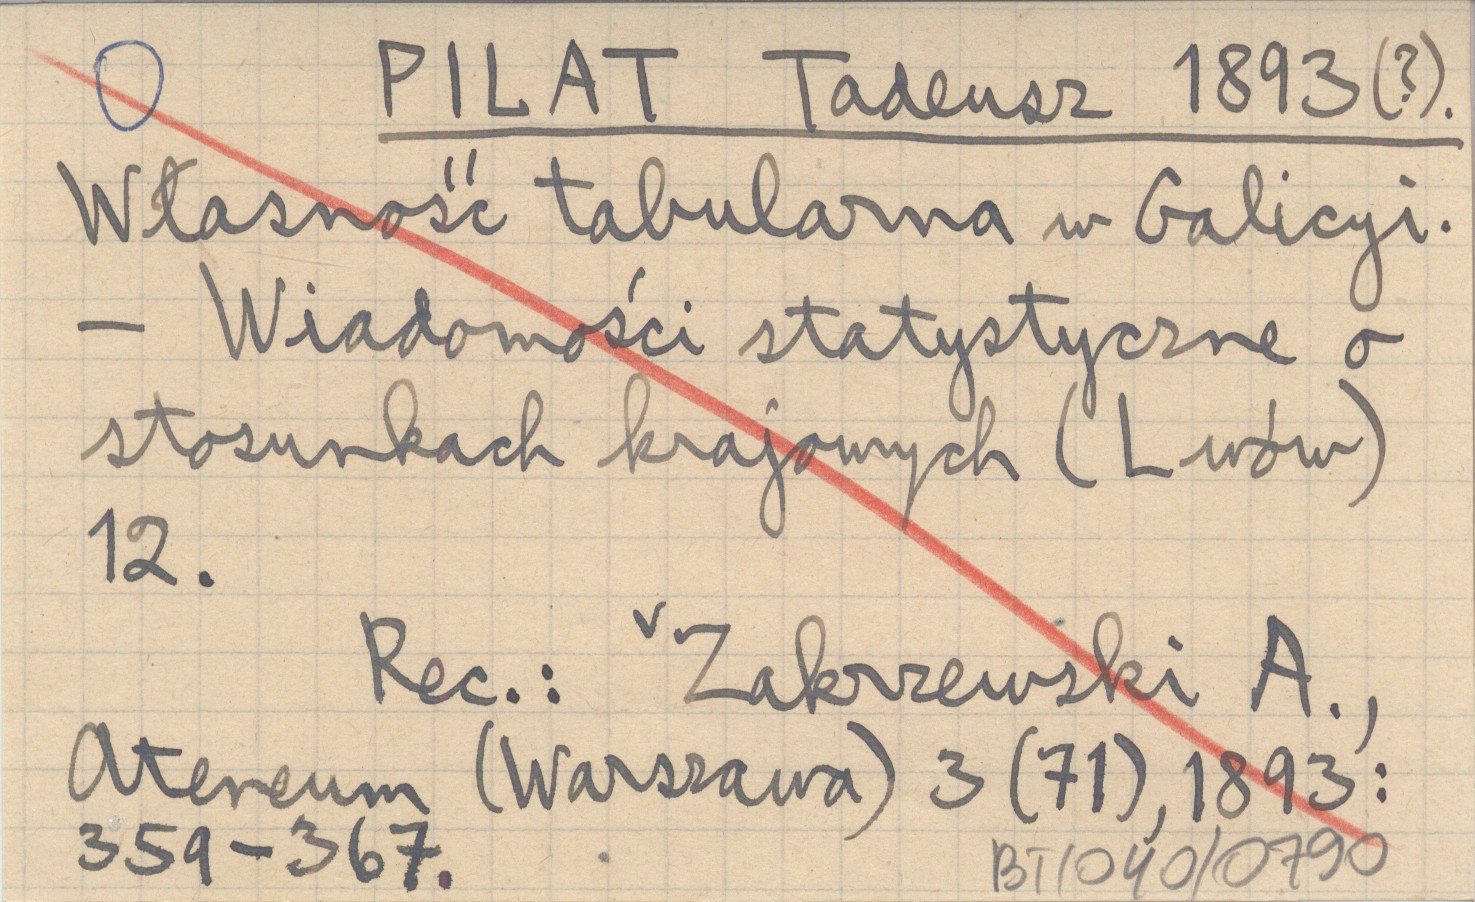 PILAT Tadeusz 1893(?).
Własność tabularna w Galicyi.
– Wiadomości statystyczne o
stosunkach krajowych (Lwów)
12.
Rec.: Zakrzewski A.,
Ateneum (Warszawa) 3 (71), 1893:
359-367.
BT/040/0790